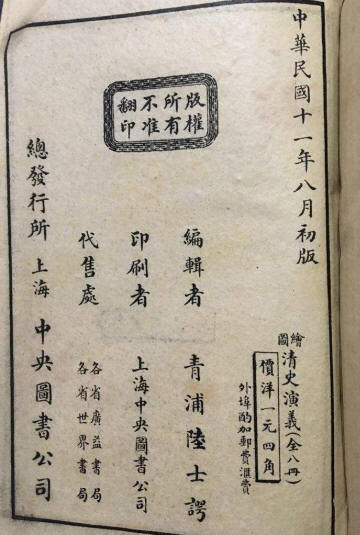 中華民國十一年八月初版
繪圖清史演義(全八冊)
價洋一元四角
外埠酌加郵費滙費
版權所有不准翻印
編輯者 青浦陸士諤
印刷者 上海中央圖書公司
代售處 各省廣益書局
各省世界書局
總發行所 上海 中央圖書公司